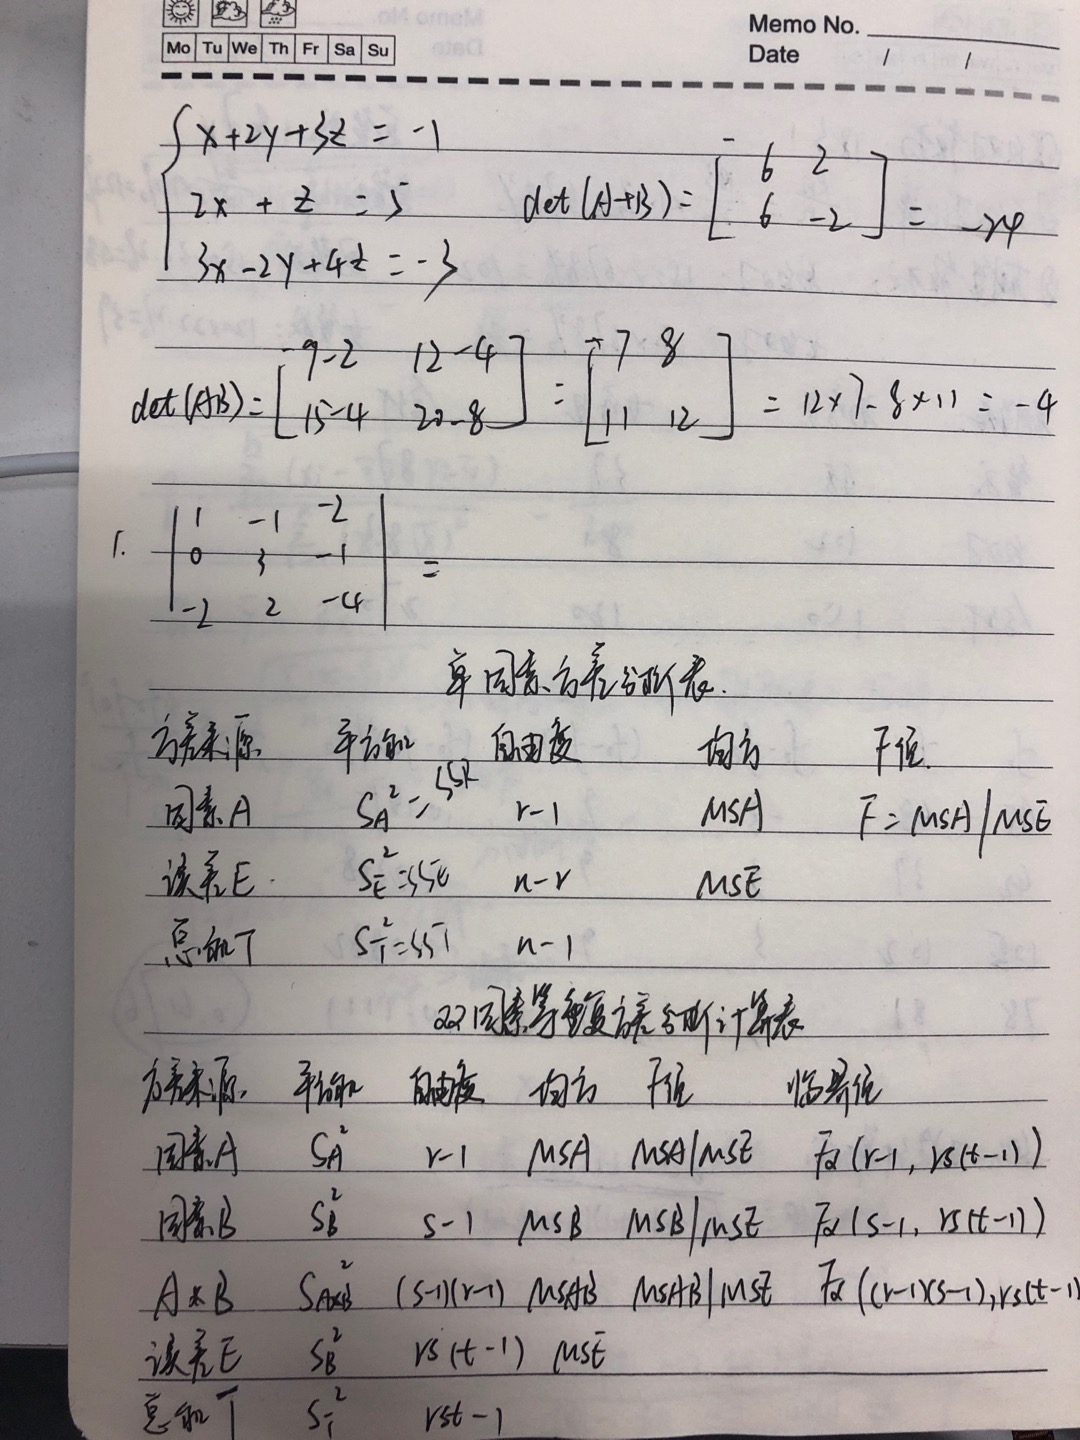 Mo Tu We Th Fr Sa Su
Memo No.
Date / /
x+2y+3z = -1
2x + z = 5
3x-2y+4z = -3
det(A+B) = [6 2
6 -2] = -24
det(AB) = [9-2 12-4
15-4 20-8] = [7 8
11 12] = 12×7-8×11 = -4
1. | 1 -1 -2
0 3 -1
-2 2 -4 | =
单因素方差分析表.
方差来源 平方和 自由度 均方 F值.
因素A S_A^2 = SSA r-1 MSA F = MSA/MSE
误差E S_E^2 = SSE n-r MSE
总和T S_T^2 = SST n-1
双因素等重复方差分析计算表
方差来源. 平方和 自由度 均方 F值 临界值
因素A S_A^2 r-1 MSA MSA/MSE Fα(r-1, rs(t-1))
因素B S_B^2 s-1 MSB MSB/MSE Fα(s-1, rs(t-1))
A*B S_{A×B}^2 (s-1)(r-1) MSAB MSAB/MSE Fα((r-1)(s-1), rs(t-1)
误差E S_B^2 rs(t-1) MSE
总和T S_T^2 rst-1